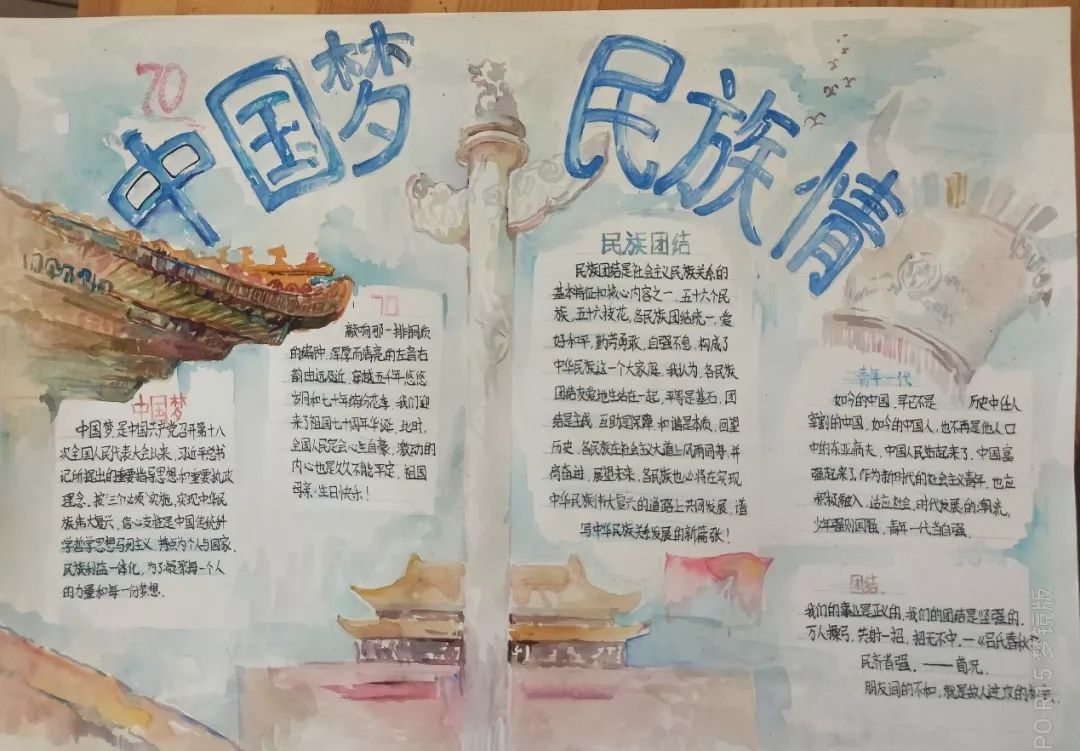 70
中国梦
民族情
中国梦
中国梦是中国共产党召开第十八
次全国人民代表大会以来，习近平总书
记所提出的重要指导思想和重要执政
理念，按"三个必须"实施，实现中华民
族伟大复兴，信心支柱是中国传统科
学哲学思想马列主义，特点为个人与国家、
民族利益一体化，为了凝聚每一个人
的力量和每一份梦想.
70
敲响那一排铜质
的编钟，浑厚而清亮的左音右
韵由远及近，穿越五千年悠悠
岁月和七十年缤纷花季，我们迎
来了祖国七十周年华诞，此时，
全国人民定会心生自豪，激动的
内心也是久久不能平定，祖国
母亲：生日快乐！
民族团结
民族团结是社会主义民族关系的
基本特征和核心内容之一，五十六个民
族，五十六枝花，各民族团结统一，爱
好和平，勤劳勇敢，自强不息，构成了
中华民族这一个大家庭，我认为，各民族
团结友爱地生活在一起，平等是基石，团
结是主线，互助是保障，和谐是本质，回望
历史，各民族在社会主义大道上风雨同舟，并
肩奋进，展望未来，各民族也必将在实现
中华民族伟大复兴的道路上共同发展，谱
写中华民族关系发展的新篇张！
青年一代
如今的中国，早已不是 历史中任人
宰割的中国，如今的中国人，也不再是他人口
中的东亚病夫，中国人民站起来了，中国富
强起来了，作为新时代的社会主义青年，也应
积极融入，适应社会，时代发展的潮流，
少年强则国强，青年一代当自强.
团结.
我们的事业是正义的，我们的团结是坚强的.
万人操弓，共射一招，招无不中.—《吕氏春秋》
民齐者强.——荀况.
朋友间的不和，就是敌人进攻的
PO R15 梦镜版